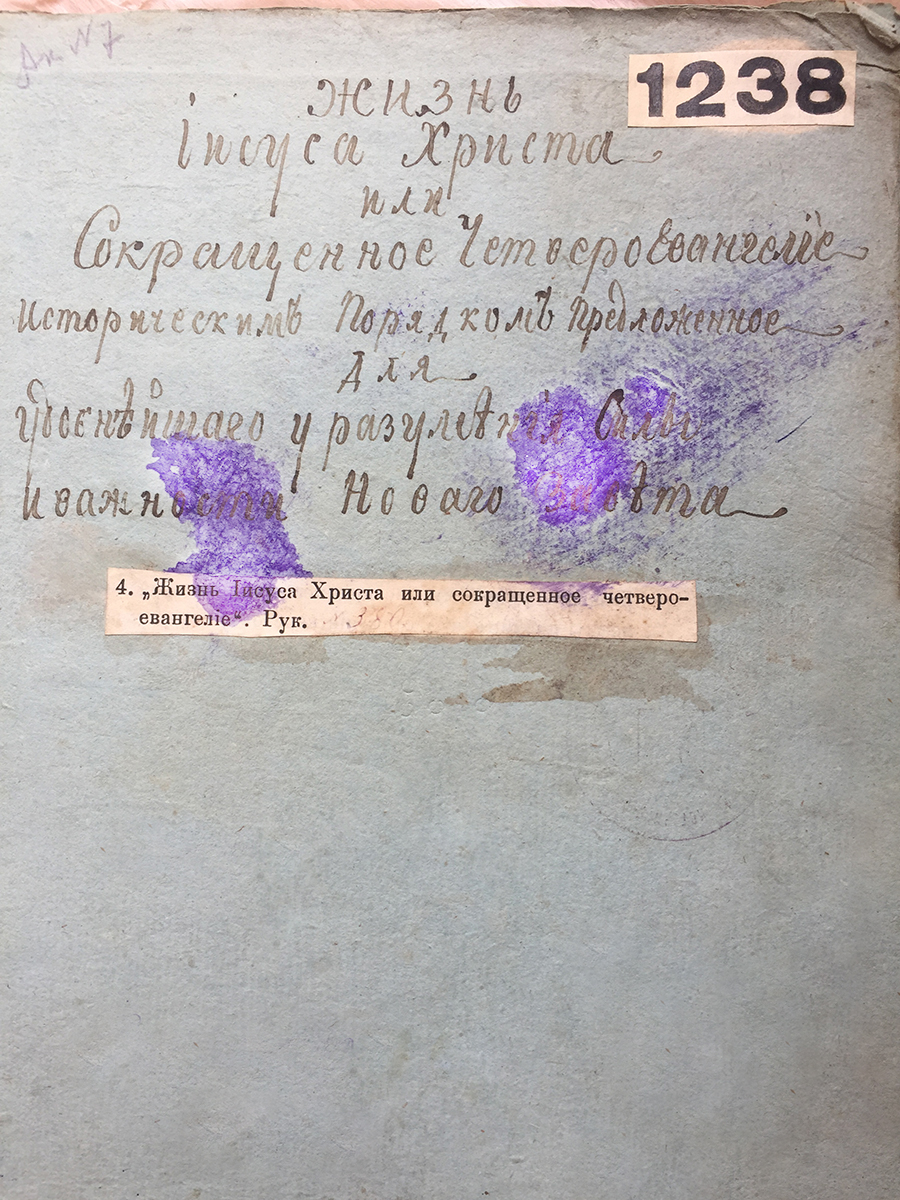 Ак N 7
1238
Жизнь
Іисуса Христа
или
Сокращенное ЧетвероЕвангеліе
Историческимъ Порядкомъ Предложенное
Для
уразумѣнія Силы
и важности Новаго Завѣта
4. „Жизнь Іисуса Христа или сокращенное четверо-
евангеліе“. Рук.